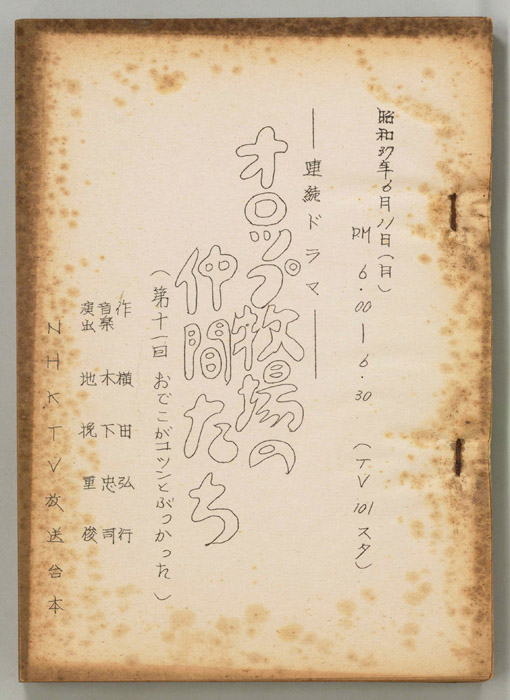 昭和37年6月11日(日)
PM 6.00—6.30 (TV 101スタ)
——連続ドラマ——
オロップ牧場の
仲間たち
(第十一回 おでこがコツンとぶつかった)
作 横田弘行
音楽 木下忠司
演出 地挽重俊
NHKTV放送台本